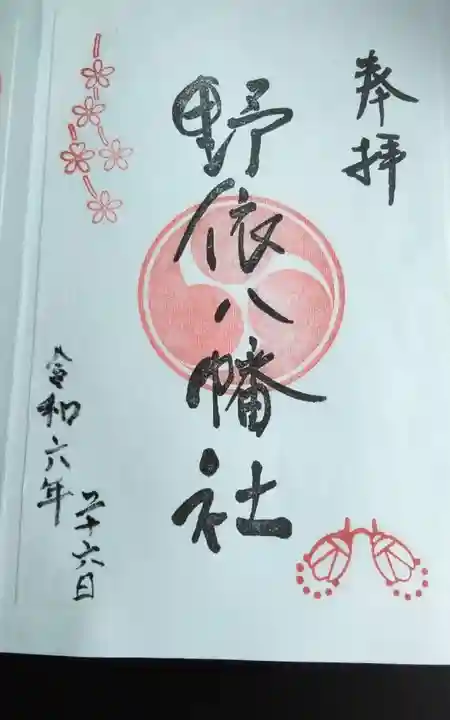 奉拝
野依八幡社
令和六年
二十六日